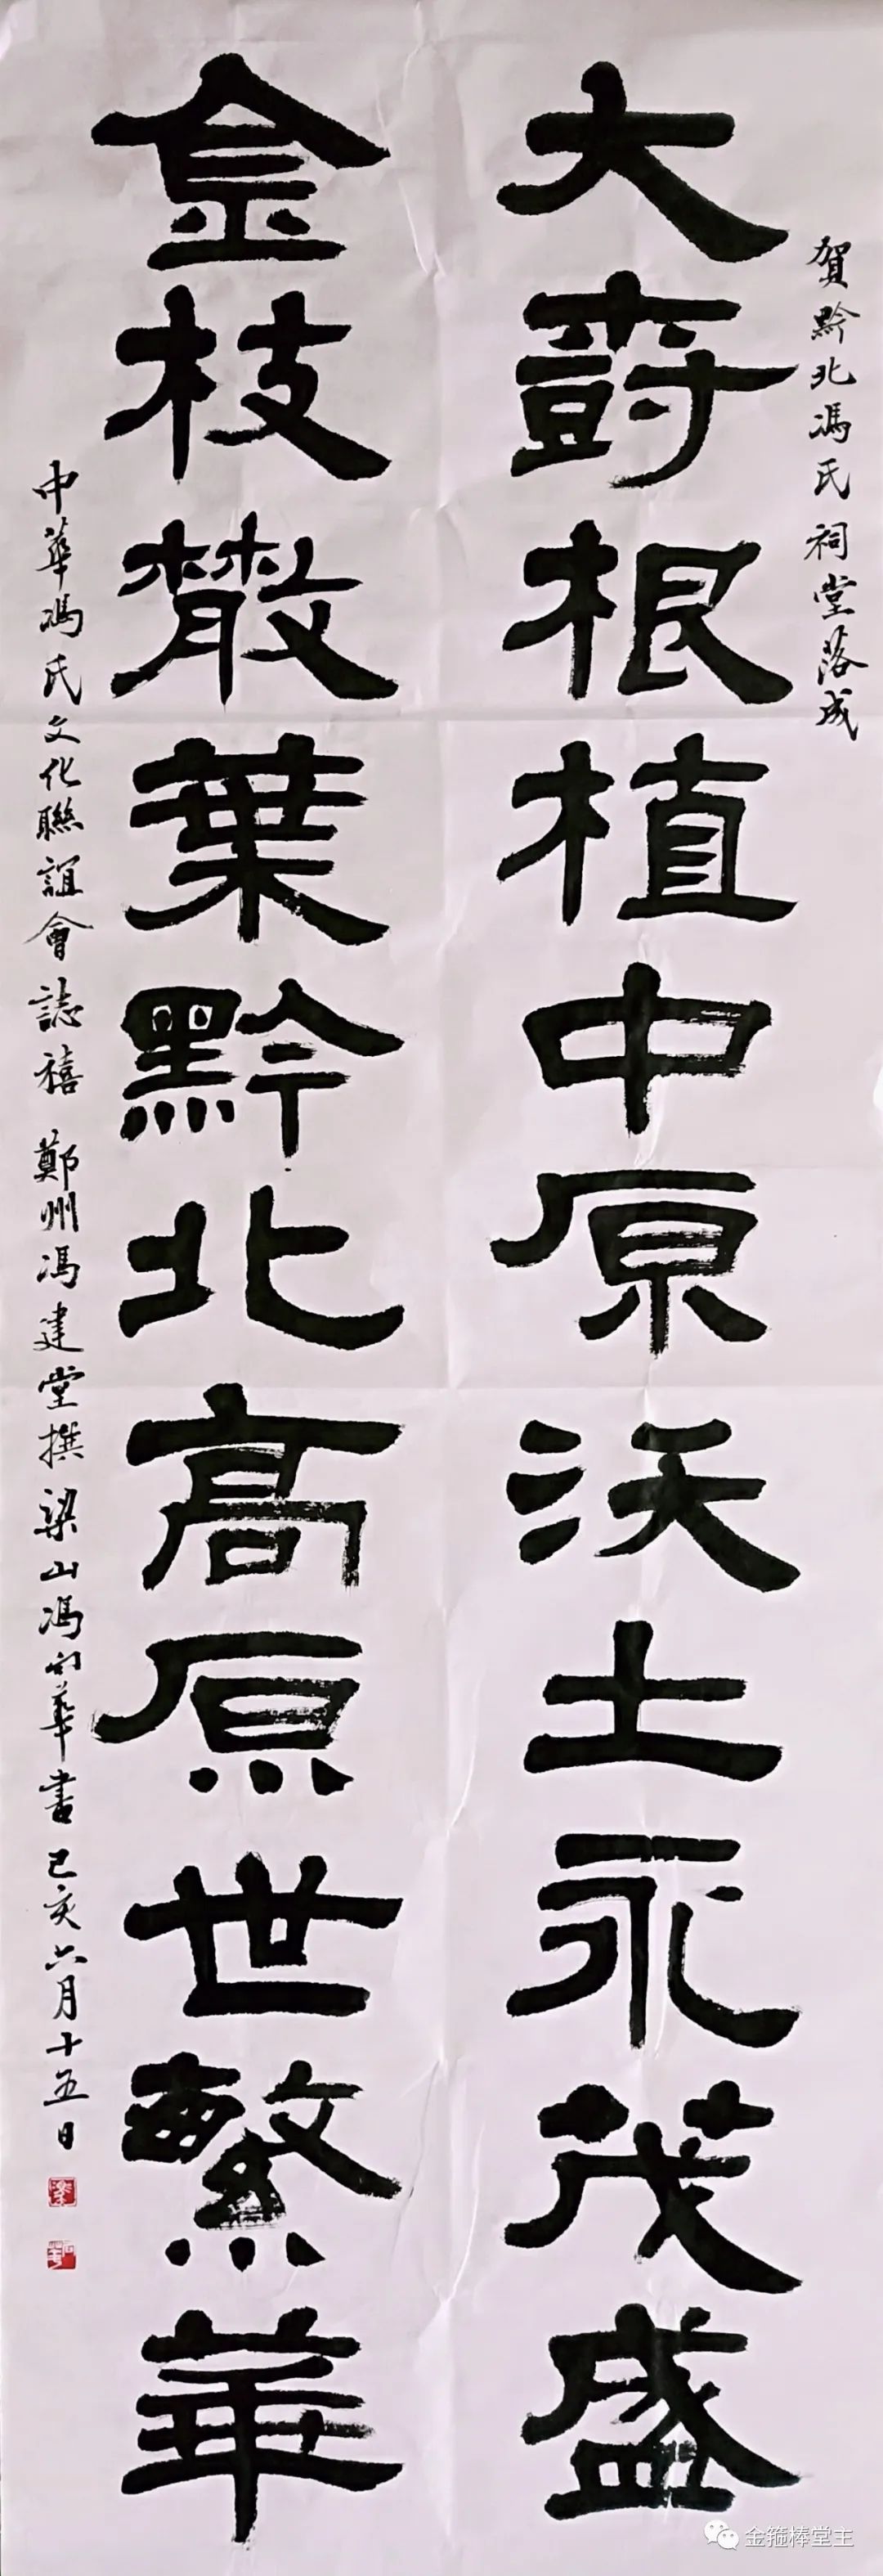 賀黔北馮氏祠堂落成
大樹根植中原沃土永茂盛
金枝散葉黔北高原世繁華
中華馮氏文化聯誼會誌禧 鄭州馮建堂撰 梁山馮 華書 己亥六月十五日
金箍棒堂主